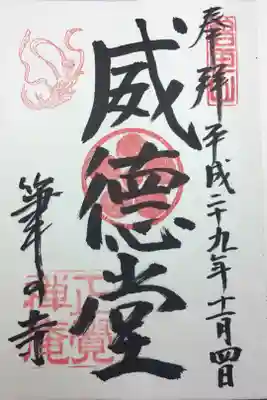 奉拝 平成二十九年十一月四日
威徳堂
筆の寺
正覺
禅庵